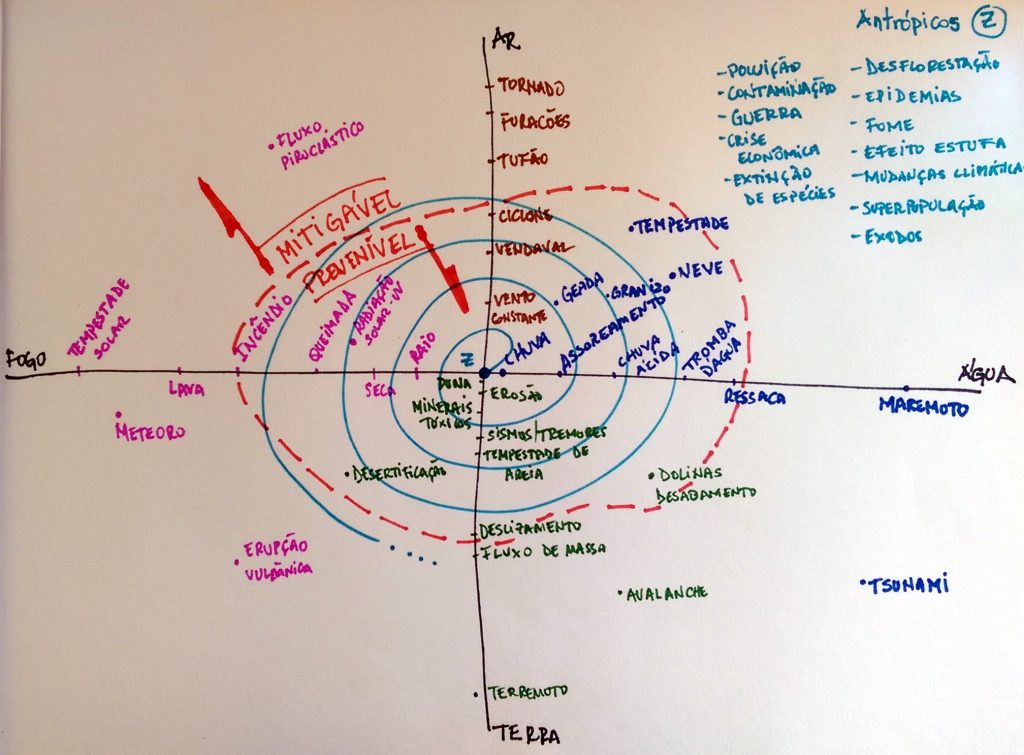 Antrópicos Z
- POLUIÇÃO
- CONTAMINAÇÃO
- GUERRA
- CRISE
ECONÔMICA
- EXTINÇÃO
DE ESPÉCIES
- DESFLORESTAÇÃO
- EPIDEMIAS
- FOME
- EFEITO ESTUFA
- MUDANÇAS CLIMÁTICAS
- SUPERPOPULAÇÃO
- EXODOS
AR
TORNADO
FURACÕES
TUFÃO
CICLONE
VENDAVAL
VENTO
CONSTANTE
FLUXO
PIROCLÁSTICO
MITIGÁVEL
PREVENÍVEL
TEMPESTADE
NEVE
GEADA
GRANIZO
ASSOREAMENTO
CHUVA
CHUVA
ÁCIDA
TROMBA
DÁGUA
TEMPESTADE
SOLAR
INCÊNDIO
QUEIMADA
RADIAÇÃO
SOLAR UV
RAIO
Z
FOGO
ÁGUA
LAVA
SECA
RESSACA
MAREMOTO
METEORO
DUNA
MINERAIS
TÓXICOS
EROSÃO
SISMOS/TREMORES
TEMPESTADE DE
AREIA
DESERTIFICAÇÃO
DOLINAS
DESABAMENTO
DESLIZAMENTO
FLUXO DE MASSA
ERUPÇÃO
VULCÂNICA
AVALANCHE
TSUNAMI
TERREMOTO
TERRA